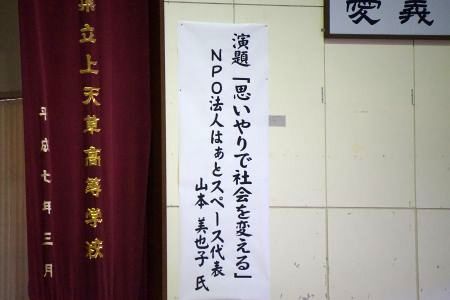 愛義
演題「思いやりで社会を変える」
NPO法人はぁとスペース代表
山本 美也子 氏
県立上天草高等学校
平成七年三月